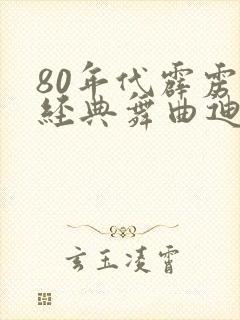 80年代霹雳
經典舞曲迪
玄玉凌霄